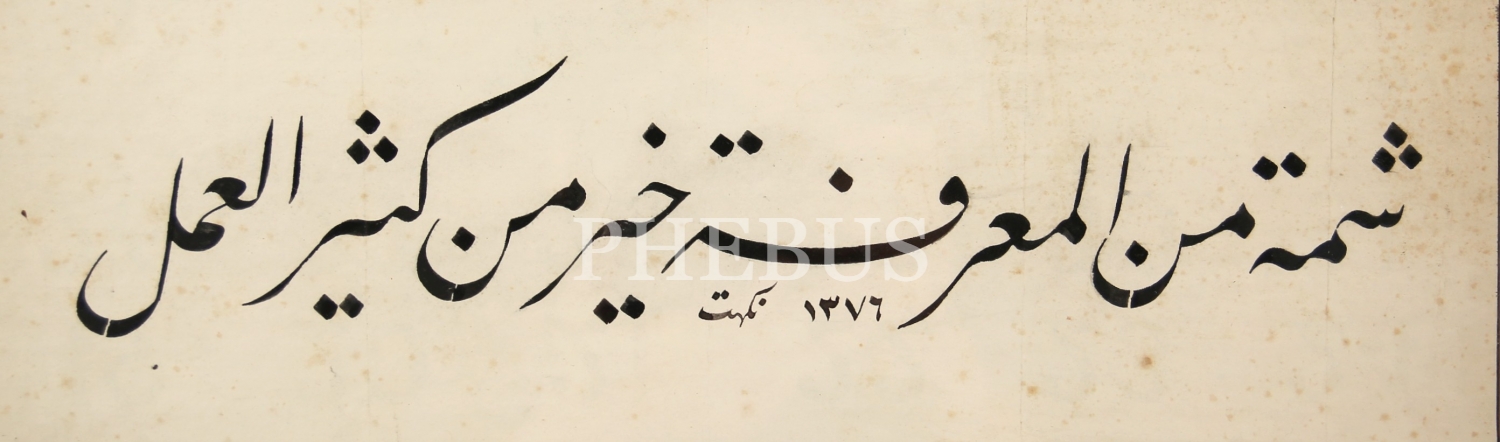 شمة من المعرفة خير من كثير العمل
١٣٧٦ نكهت
PHEBUS